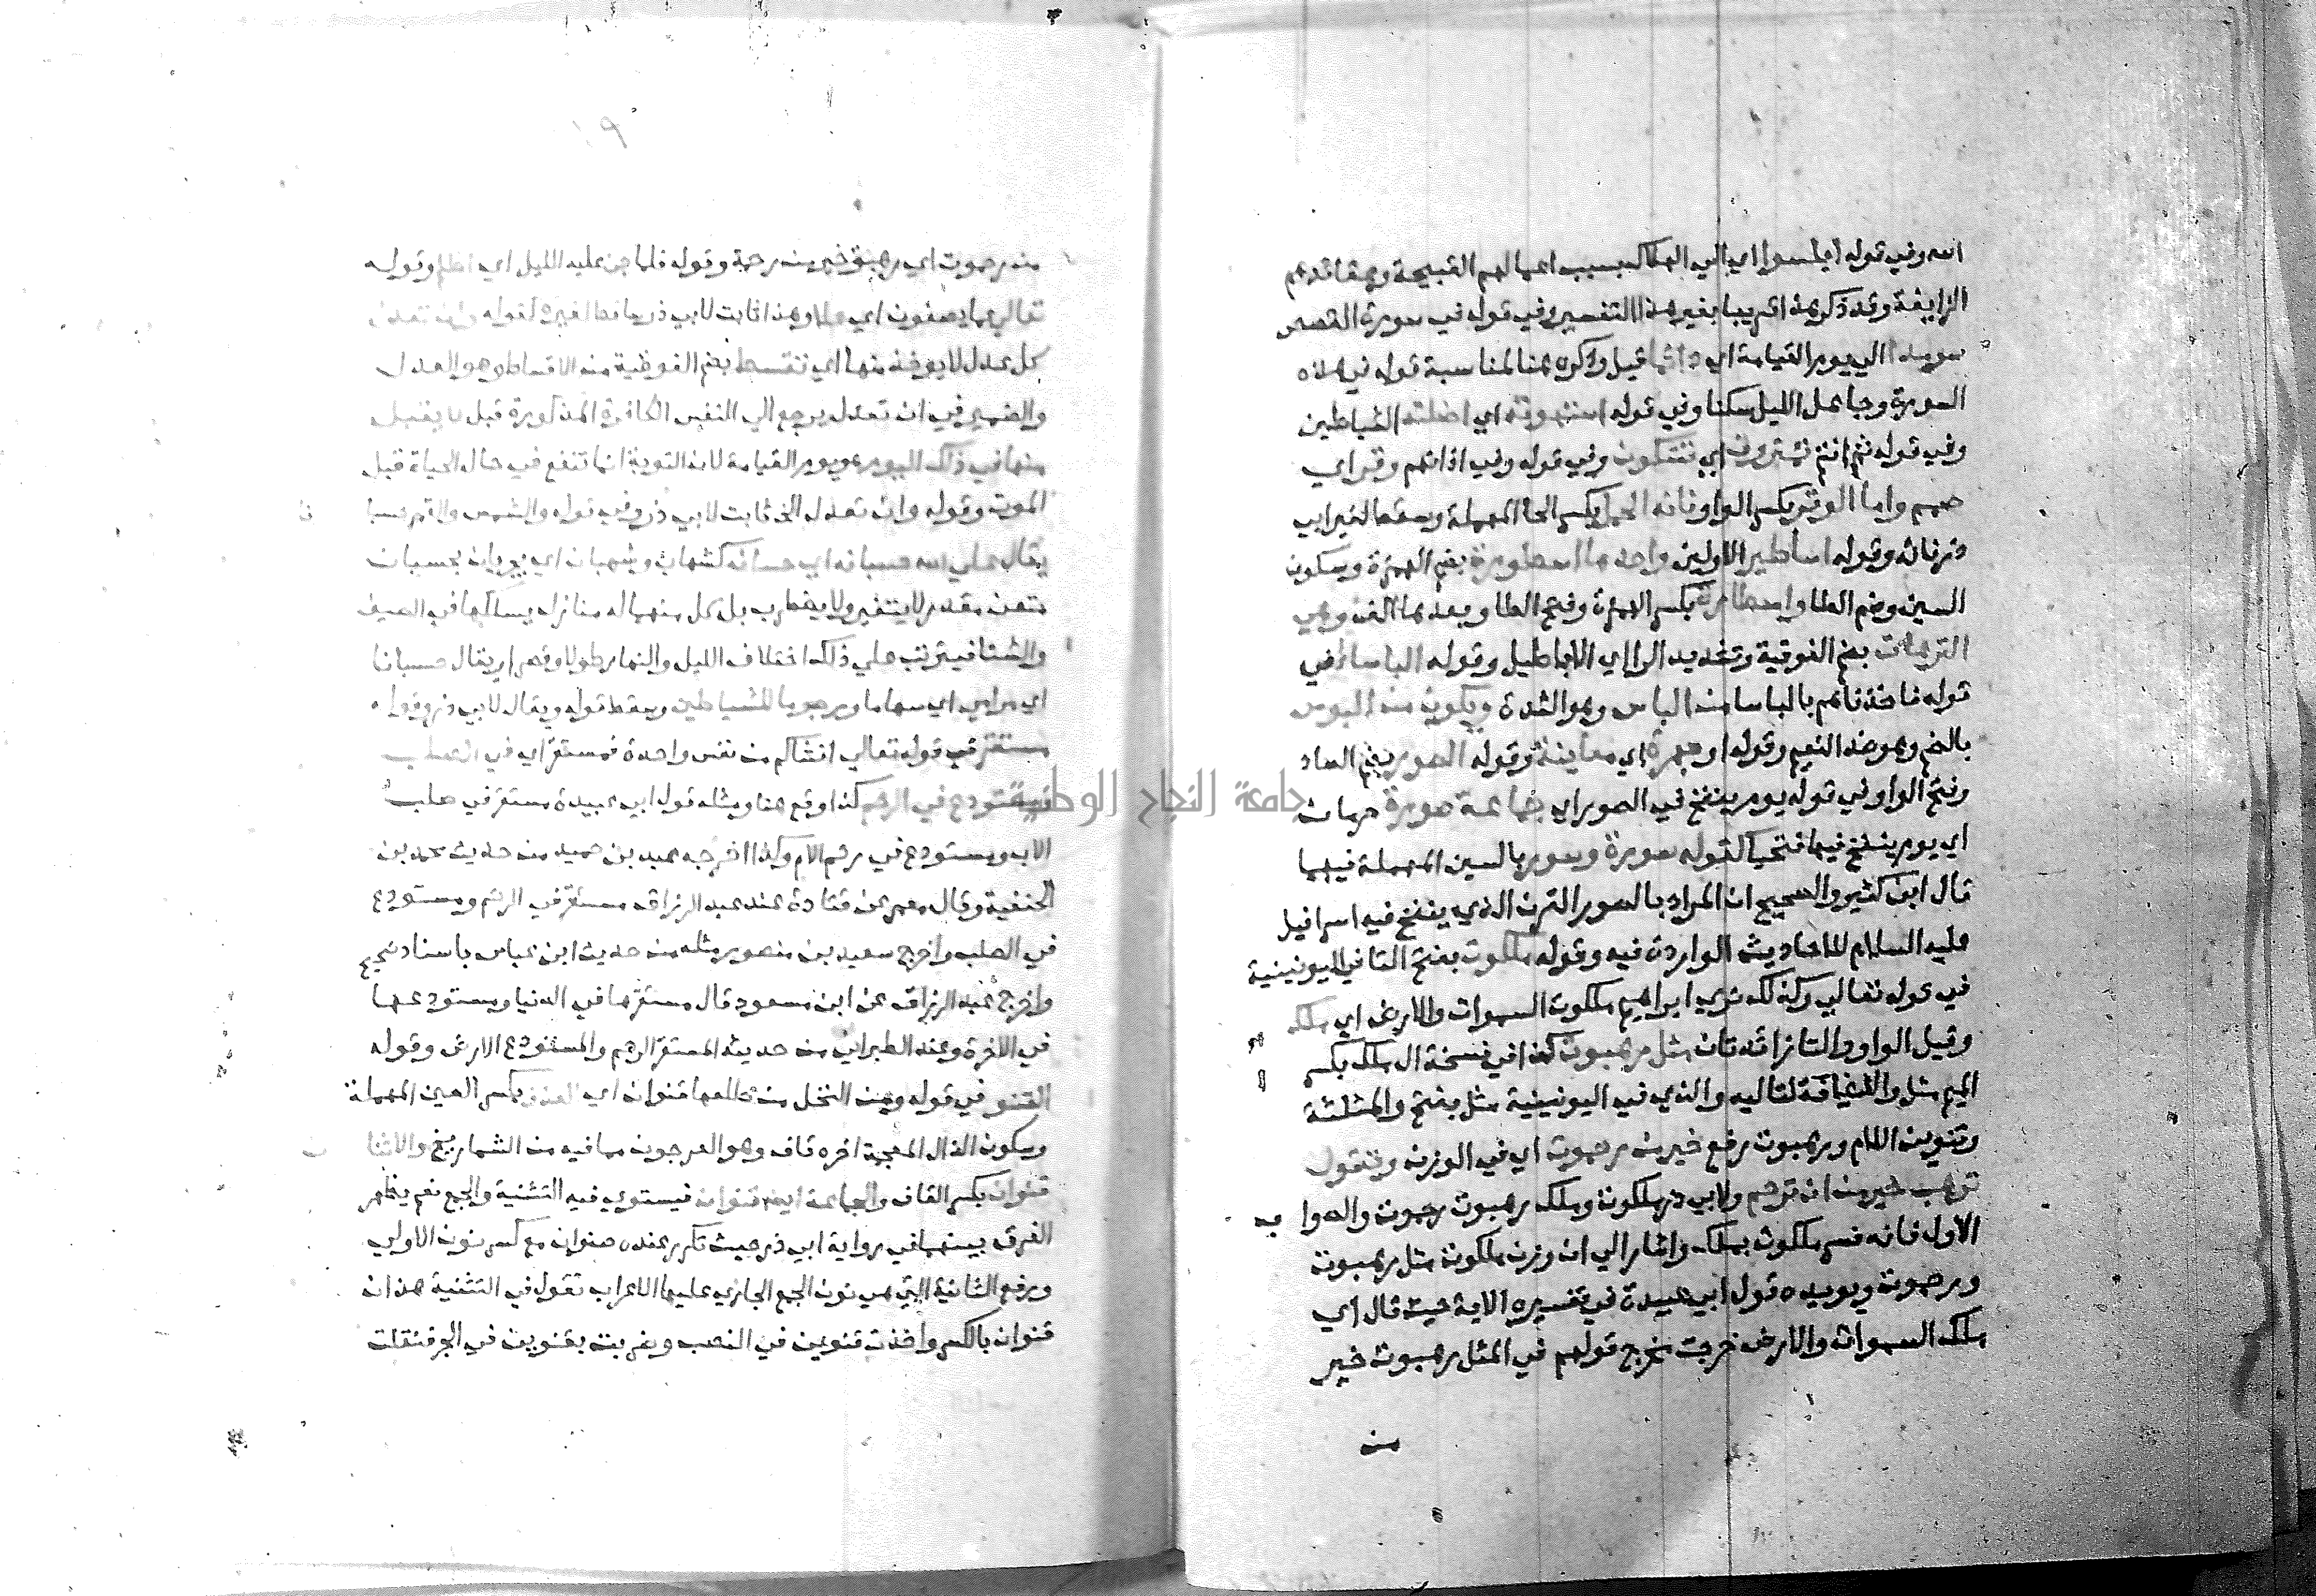 الله وفي قوله ابلسوا اي الي الهلاك بسبب اعمالهم القبيحة وعقائدهم
الزايغة وقد ذكر هذا قريبا بغير هذا التفسير وفي قوله في سورة القصص
سرمدا الي يوم القيامة اي دائما قيل وذكره هنا لمناسبة قوله في هذه
السورة وجاعل الليل سكنا وفي قوله استهوته اي اضلته الشياطين
وفي قوله ثم انتم تمترون اي تشكون وفي قوله وفي اذانهم وقر اي
صمم واما الوقر بكسر الواو فانه الحمل بكسر الحا المهملة وسقط لغير ابي
ذر فانه وقوله اساطير الاولين واحدها اسطورة بضم الهمزة وسكون
السين وضم الطا واسطارة بكسر الهمزة وفتح الطا وبعدها الف وهي
الترهات بضم الفوقية وتشديد الرا اي الاباطيل وقوله الباساء في
قوله فاخذناهم بالباسا من الباس وهو الشدة ويكون من البوس
بالضم وهو ضد النعيم وقوله او جهرة اي معاينة وقوله الصور بضم الصاد
وفتح الواو في قوله يوم ينفخ في الصور اي جماعة صورة
اي يوم ينفخ فيها فتحيا كقوله سورة وسور بالسين المهملة فيهما
قال ابن كثير والصحيح ان المراد بالصور القرن الذي ينفخ فيه اسرافيل
عليه السلام للاحاديث الواردة فيه وقوله ملكوت بفتح التا في اليونينية
في قوله تعالي وكذلك نري ابراهيم ملكوت السموات والارض اي ملك
وقيل الواو والتا زائدتان مثل رهبوت كذا في نسخة ال ملك بكسر
الميم مثل والاضافة لتاليه والذي في اليونينية مثل بفتح والمثلثة
وتنوين اللام ورهبوت رفع خير من رحموت اي في الوزن وتقول
ترهب خير من ان ترحم ولابي ذر ملكوت وملك رهبوت رحموت والصوا ب
الاول فانه فسر ملكوت بملك واشار الي ان وزن ملكوت مثل رهبوت
ورحموت ويويده قول ابي عبيدة في تفسيره الاية حيث قال اي
ملك السموات والارض خرجت مخرج قولهم في المثل رهبوت خير
من
١٩
من رحموت اي رهبة خير من رحمة وقوله فلما جن عليه الليل اي اظلم وقوله
تعالي عما يصفون اي علا وهذا ثابت لابي ذر ساقط لغيره كقوله وان تعدل
كل عدل لا يوخذ منها اي تقسط بضم الفوقية من الاقساط وهو العدل
والضمير في ان تعدل يرجع الي النفس الكافرة المذكورة قبل لا يقبل
منها في ذلك اليوم هو يوم القيامة لان التوبة انما تنفع في حال الحياة قبل
الموت وقوله وان تعدل الخ ثابت لابي ذر وفي قوله والشمس والقمر حسبا نا
يقال علي الله حسبانه اي حسابه كشهاب وشهبان اي يجريان بحسبان
متقن مقدر لا يتغير ولا يضطرب بل كل منهما له منازل يسلكها في الصيف
والشتا فيترتب علي ذلك اختلاف الليل والنهار طولا وقصرا ويقال حسبانا
اي مرامي اي سهاما ورجوما للشياطين وسقط قوله ويقال لابي ذر وقوله
مستقر في قوله تعالي انشاكم من نفس واحدة فمستقر اي في الصلب
ومستودع في الرحم كذا وقع هنا ومثله قول ابي عبيدة مستقر في صلب
الاب ومستودع في رحم الام وكذا اخرجه عبد بن حميد من حديث محمد بن
الحنفية وقال معمر عن قتادة عند عبد الرزاق مستقر في الرحم ومستودع
في الصلب واخرج سعيد بن منصور مثله من حديث ابن عباس باسناد صحيح
واخرج عبد الرزاق عن ابن مسعود قال مستقرها في الدنيا ومستودعها
في الاخرة وعند الطبراني من حديثه المستقر الرحم والمستودع الارض وقوله
القنو في قوله ومن النخل من طلعها قنوان اي العذق بكسر العين المهملة
وسكون الذال المعجمة اخره قاف وهو العرجون بما فيه من الشماريخ والاثنا ن
قنوان بكسر القاف والجماعة ايضا قنوان فيستوي فيه التثنية والجمع نعم يظهر
الفرق بينهما في رواية ابي ذر حيث تكرر عنده صنوان مع كسر نون الاولي
ورفع الثانية التي هي نون الجمع الجاري عليها الاعراب تقول في التثنية هذان
قنوان بالكسر واخذت قنوين في النصب وضربت بقنوين في الجر فنقلت
جامعة النجاح الوطنية